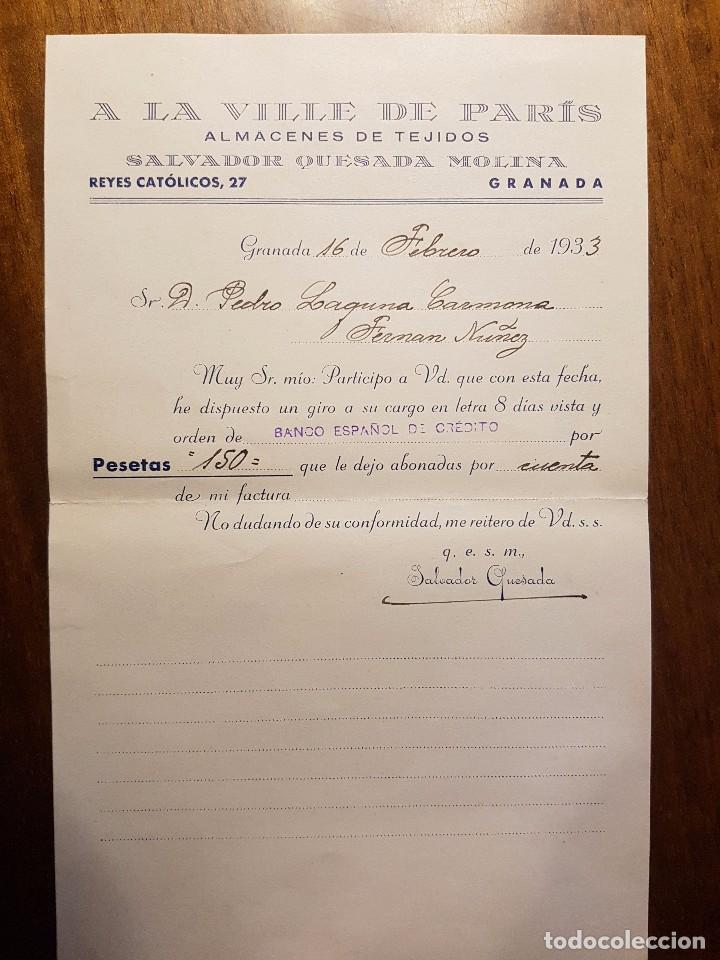 A LA VILLE DE PARÍS
ALMACENES DE TEJIDOS
SALVADOR QUESADA MOLINA
REYES CATÓLICOS, 27 GRANADA
Granada 16 de Febrero de 1933
Sr. D. Pedro Laguna Carmona
Fernan Nuñez
Muy Sr. mío: Participo a Vd. que con esta fecha,
he dispuesto un giro a su cargo en letra 8 días vista y
orden de BANCO ESPAÑOL DE CRÉDITO por
Pesetas "150= que le dejo abonadas por cuenta
de mi factura
No dudando de su conformidad, me reitero de Vd. s. s.
q. e. s. m.,
Salvador Quesada
todocoleccion